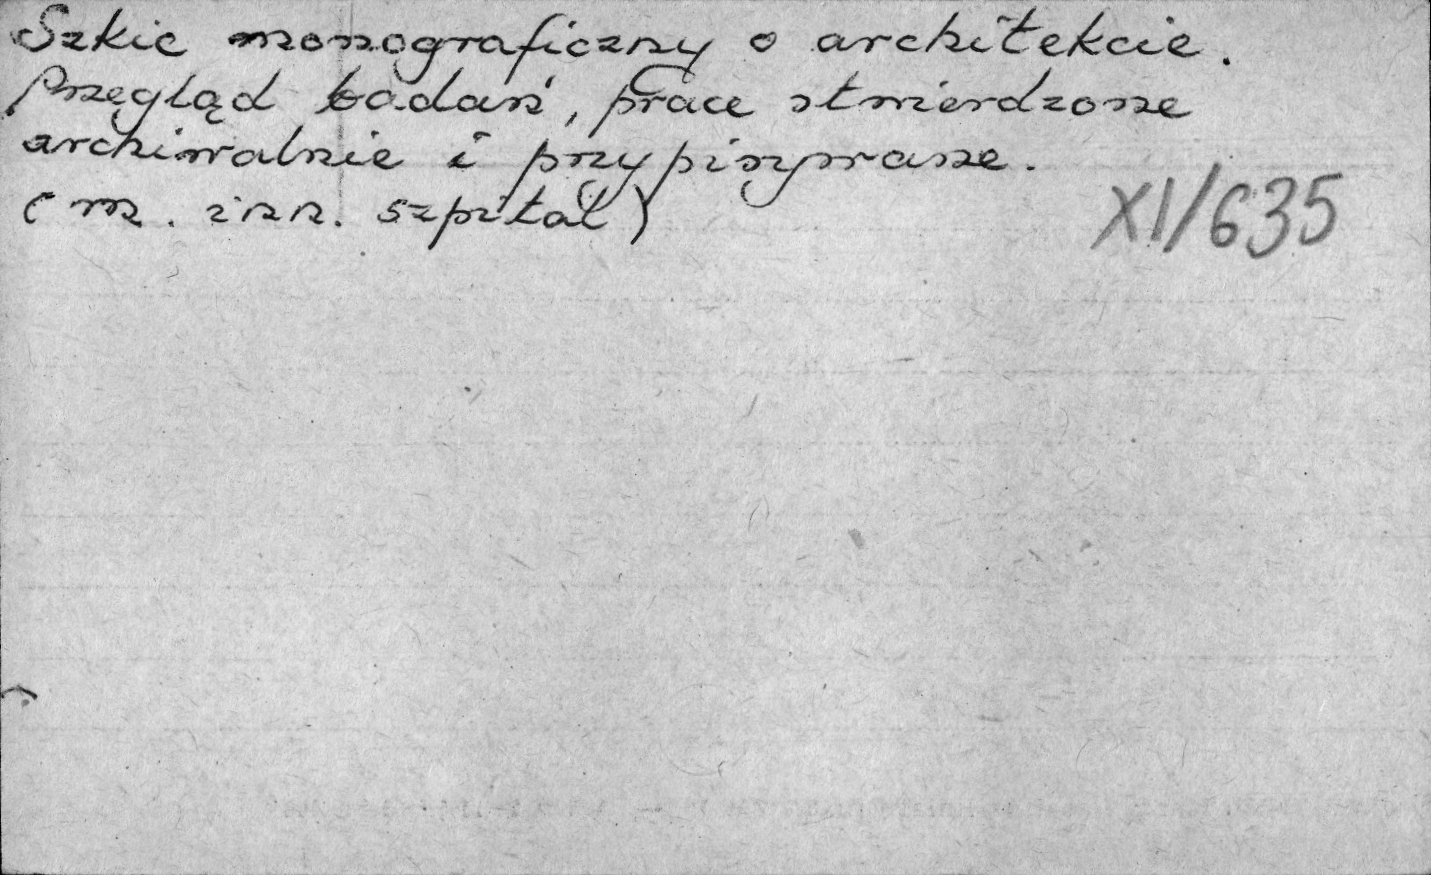 Szkic monograficzny o architekcie.
Przegląd badań, prace stwierdzone
archiwalnie i przypisywane.
(m. inn. szpital)
XI/635